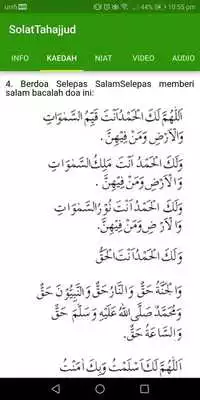 unifi
44% 10:55 pm
SolatTahajjud
INFO KAEDAH NIAT VIDEO AUDIO
4. Berdoa Selepas SalamSelepas memberi
salam bacalah doa ini:
اَللّٰهُمَّ لَكَ الْحَمْدُ اَنْتَ قَيِّمُ السَّمٰوَاتِ
وَالْاَرْضِ وَمَنْ فِيْهِنَّ.
وَلَكَ الْحَمْدُ اَنْتَ مَلِكُ السَّمٰوَاتِ
وَالْاَرْضِ وَمَنْ فِيْهِنَّ.
وَلَكَ الْحَمْدُ اَنْتَ نُوْرُ السَّمٰوَاتِ
وَالْاَرْضِ وَمَنْ فِيْهِنَّ.
وَلَكَ الْحَمْدُ اَنْتَ الْحَقُّ
وَالْجَنَّةُ حَقٌّ وَالنَّارُ حَقٌّ وَالنَّبِيُّوْنَ حَقٌّ
وَمُحَمَّدٌ صَلَّى اللهُ عَلَيْهِ وَسَلَّمَ حَقٌّ
وَالسَّاعَةُ حَقٌّ.
اَللّٰهُمَّ لَكَ اَسْلَمْتُ وَبِكَ اٰمَنْتُ